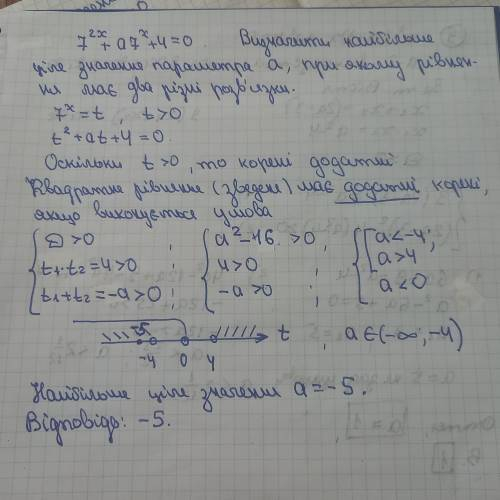 7^{2x} + a7^x + 4 = 0 Визначити найбільше
ціле значення параметра a, при якому рівнян-
ня має два різні розв'язки.
7^x = t, t > 0
t^2 + at + 4 = 0.
Оскільки t > 0, то корені додатні.
Квадратне рівняння (зведене) має додатні корені,
якщо виконується умова
D > 0 ; a^2 - 16 > 0 ; a < -4,
t_1 t_2 = 4 > 0 ; 4 > 0 ; a > 4
t_1 + t_2 = -a > 0 ; -a > 0 ; a < 0
-5 t , a ∈ (-∞, -4)
-4 0 4
Найбільше ціле значення a = -5.
Відповідь: -5.